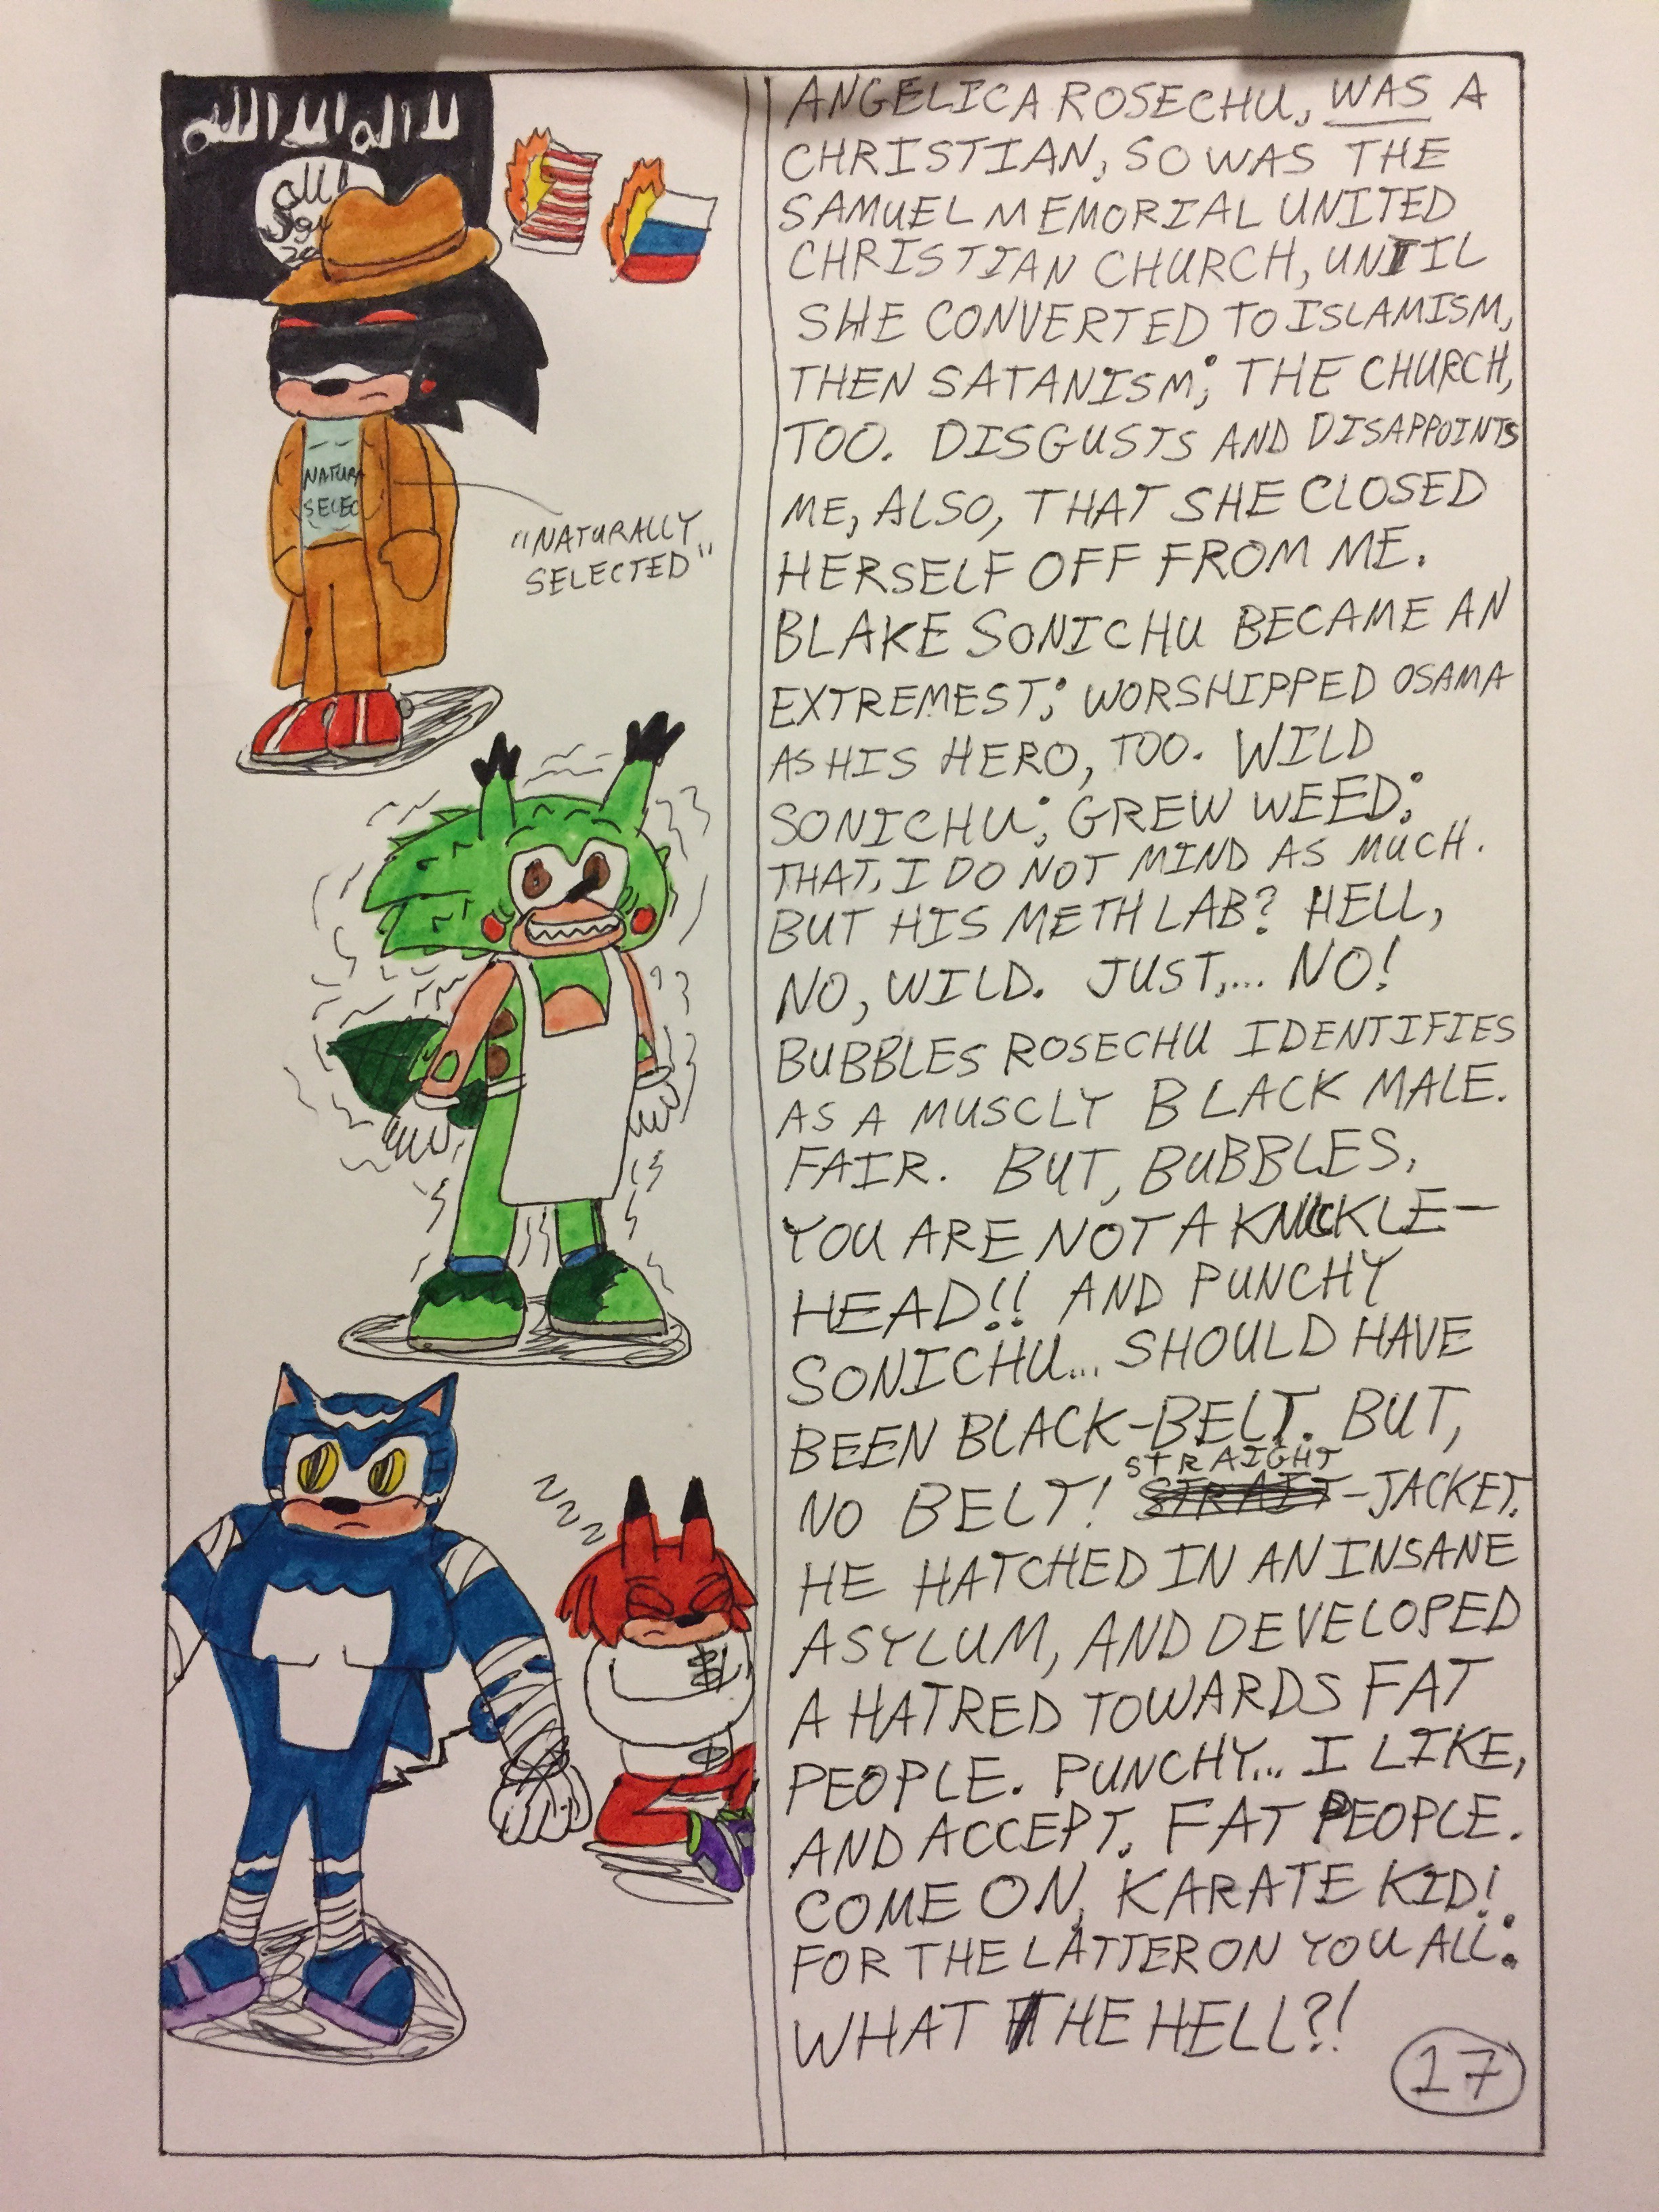 NATURA
SELEC
"NATURALLY
SELECTED"
ZZZZ
ANGELICA ROSECHU, WAS A
CHRISTIAN, SO WAS THE
SAMUEL MEMORIAL UNITED
CHRISTIAN CHURCH, UNTIL
SHE CONVERTED TO ISLAMISM,
THEN SATANISM; THE CHURCH,
TOO. DISGUSTS AND DISAPPOINTS
ME, ALSO, THAT SHE CLOSED
HERSELF OFF FROM ME.
BLAKE SONICHU BECAME AN
EXTREMEST; WORSHIPPED OSAMA
AS HIS HERO, TOO. WILD
SONICHU; GREW WEED;
THAT, I DO NOT MIND AS MUCH.
BUT HIS METH LAB? HELL,
NO, WILD. JUST,... NO!
BUBBLES ROSECHU IDENTIFIES
AS A MUSCLY BLACK MALE.
FAIR. BUT, BUBBLES,
YOU ARE NOT A KNUCKLE-
HEAD!! AND PUNCHY
SONICHU... SHOULD HAVE
BEEN BLACK-BELT. BUT,
NO BELT! STRAIGHT-JACKET.
HE HATCHED IN AN INSANE
ASYLUM, AND DEVELOPED
A HATRED TOWARDS FAT
PEOPLE. PUNCHY... I LIKE,
AND ACCEPT, FAT PEOPLE.
COME ON, KARATE KID!
FOR THE LATTER ON YOU ALL:
WHAT THE HELL?!
17